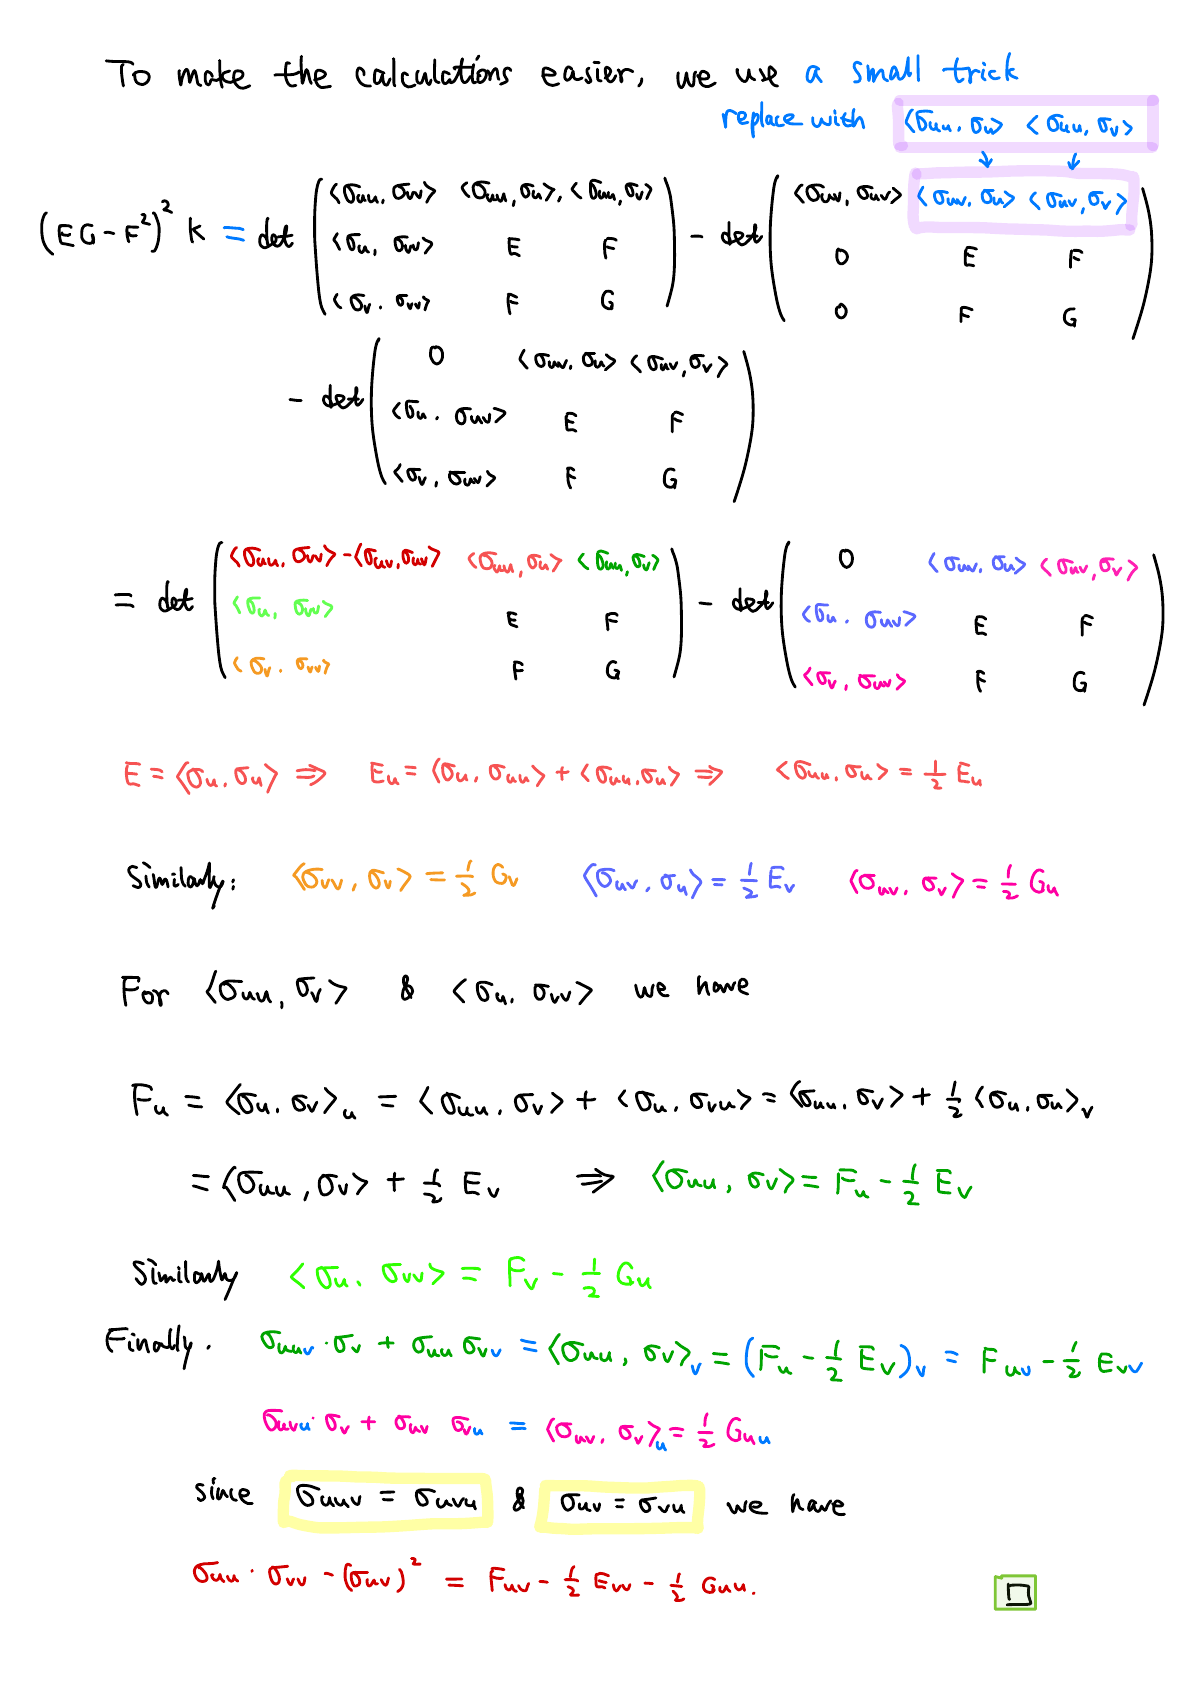 To make the calculations easier, we use a small trick
replace with ⟨σuu, σu⟩ ⟨σuu, σv⟩
↓ ↓
(EG-F²)² K = det ( ⟨σuu, σvv⟩ ⟨σuu, σu⟩, ⟨σuu, σv⟩ ) - det ( ⟨σuv, σuv⟩ ⟨σuv, σu⟩ ⟨σuv, σv⟩ )
⟨σu, σvv⟩ E F 0 E F
⟨σv, σvv⟩ F G 0 F G
- det ( 0 ⟨σuv, σu⟩ ⟨σuv, σv⟩ )
⟨σu, σuv⟩ E F
⟨σv, σuv⟩ F G
= det ( ⟨σuu, σvv⟩ - ⟨σuv, σuv⟩ ⟨σuu, σu⟩ ⟨σuu, σv⟩ ) - det ( 0 ⟨σuv, σu⟩ ⟨σuv, σv⟩ )
⟨σu, σvv⟩ E F ⟨σu, σuv⟩ E F
⟨σv, σvv⟩ F G ⟨σv, σuv⟩ F G
E = ⟨σu, σu⟩ ⇒ Eu = ⟨σu, σuu⟩ + ⟨σuu, σu⟩ ⇒ ⟨σuu, σu⟩ = 1/2 Eu
Similarly: ⟨σvv, σv⟩ = 1/2 Gv ⟨σuv, σu⟩ = 1/2 Ev ⟨σuv, σv⟩ = 1/2 Gu
For ⟨σuu, σv⟩ & ⟨σu, σvv⟩ we have
Fu = ⟨σu, σv⟩u = ⟨σuu, σv⟩ + ⟨σu, σvu⟩ = ⟨σuu, σv⟩ + 1/2 ⟨σu, σu⟩v
= ⟨σuu, σv⟩ + 1/2 Ev ⇒ ⟨σuu, σv⟩ = Fu - 1/2 Ev
Similarly ⟨σu, σvv⟩ = Fv - 1/2 Gu
Finally. σuuv · σv + σuu σvv = ⟨σuu, σv⟩v = (Fu - 1/2 Ev)v = Fuv - 1/2 Evv
σuvu · σv + σuv σvu = ⟨σuv, σv⟩u = 1/2 Guu
since σuuv = σuvu & σuv = σvu we have
σuu · σvv - (σuv)² = Fuv - 1/2 Evv - 1/2 Guu.
□